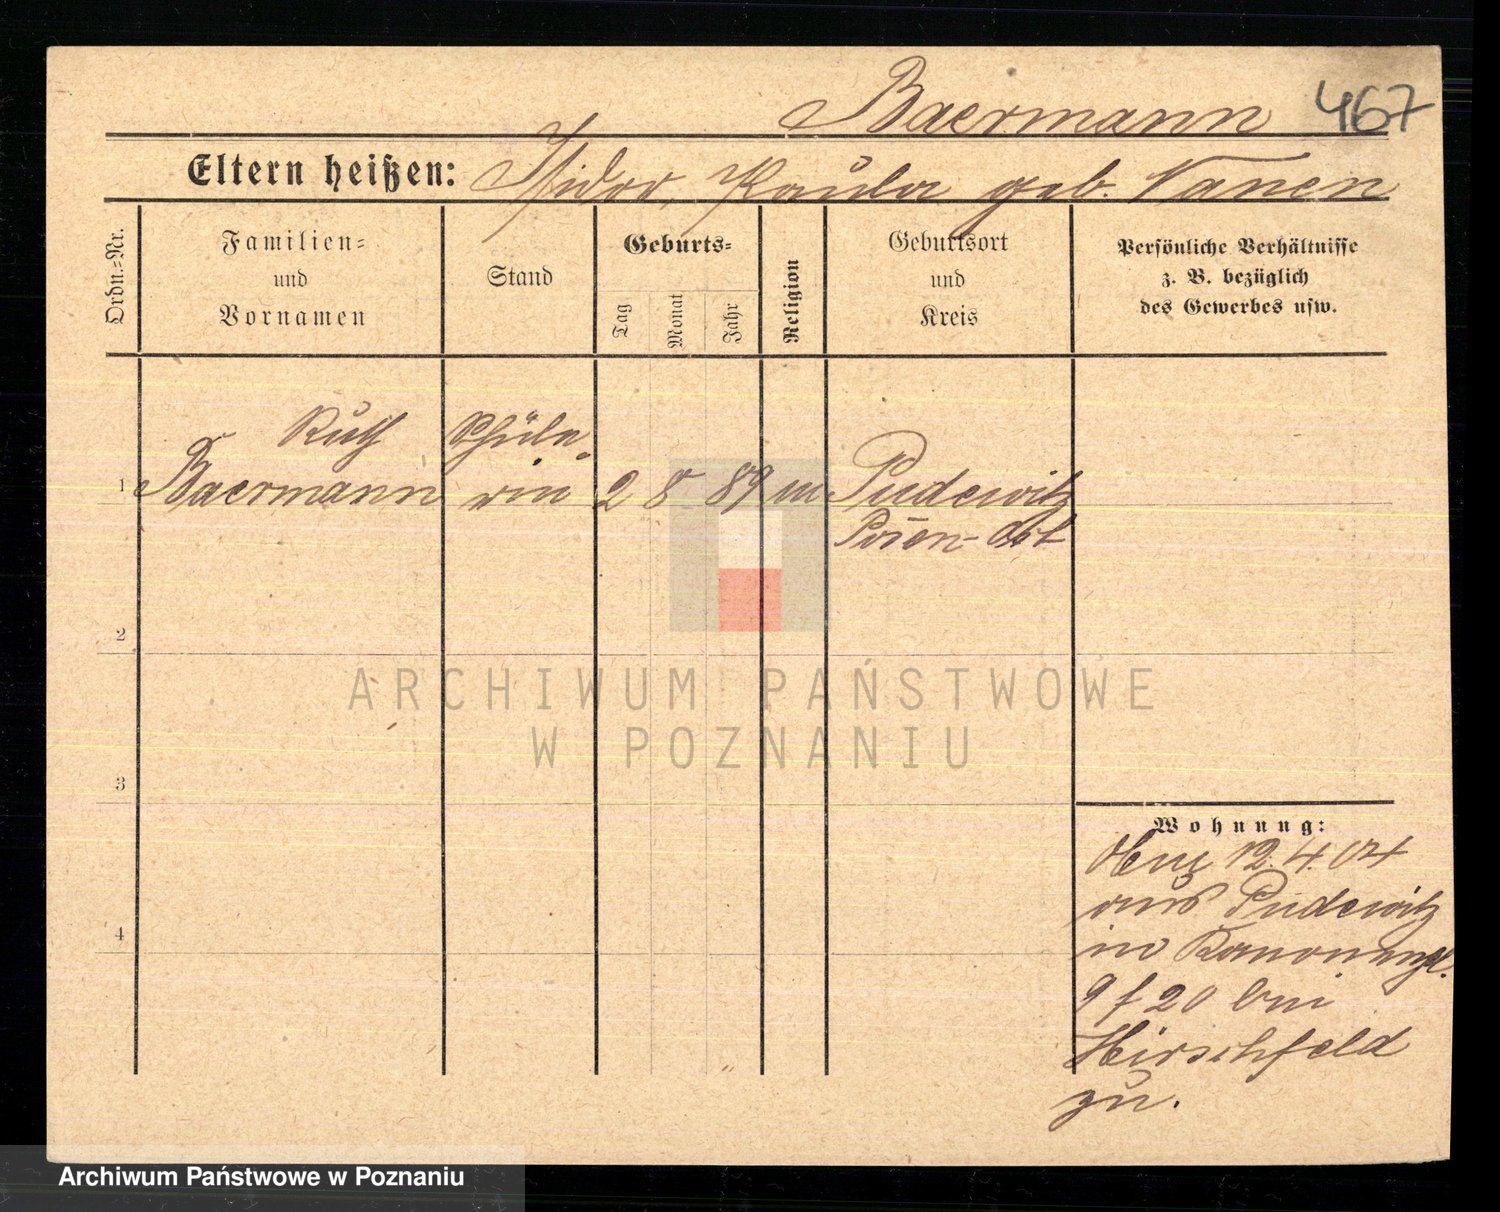 Baermann 467
Eltern heißen: Isidor, Paula geb. Vanen
Ordn.-Nr.
Familien-
und
Vornamen
Stand
Geburts-
Tag
Monat
Jahr
Religion
Geburtsort
und
Kreis
Persönliche Verhältnisse
z. B. bezüglich
des Gewerbes usw.
Ruth Schüle-
1 Baermann rin 2 8 89 m Pudewitz
Posen-Ost
2
ARCHIWUM PAŃSTWOWE
W POZNANIU
3
Wohnung:
12.4.04
aus Pudewitz
in Kanonenpl.
4
9 f 20 bei
Hirschfeld
zu.
Archiwum Państwowe w Poznaniu